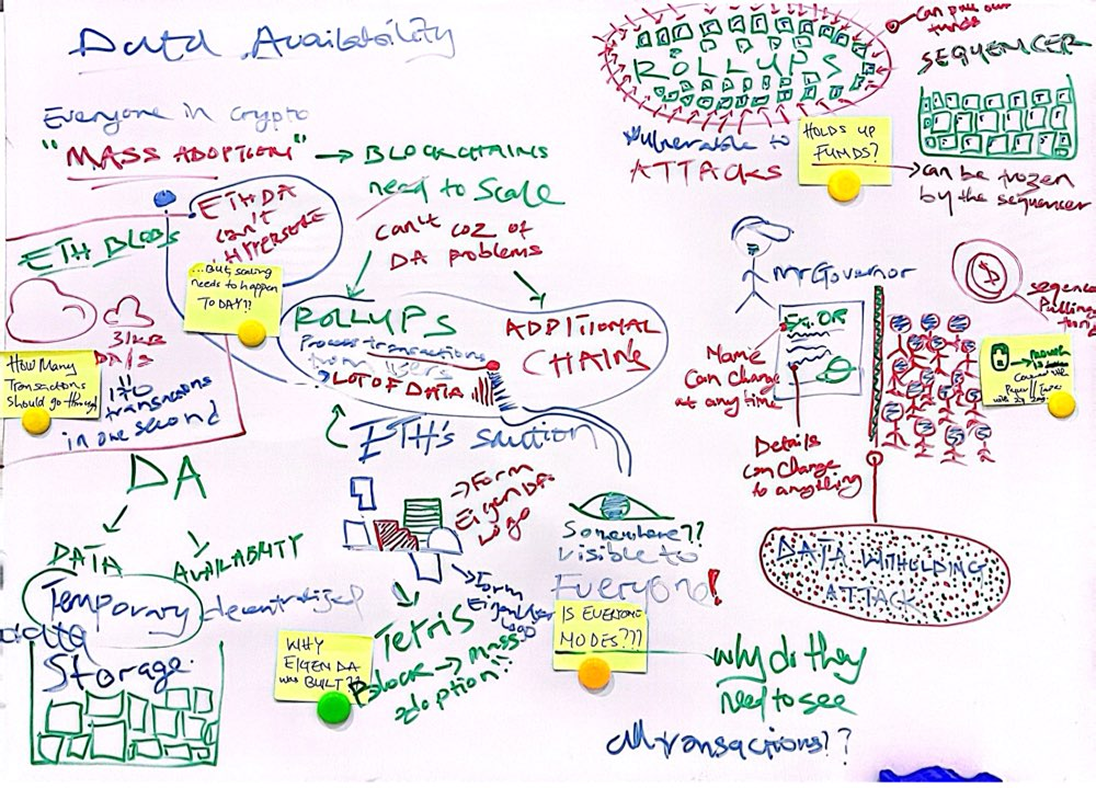 Data Availability
Everyone in crypto
"MASS ADOPTION"
→ BLOCKCHAINS
need to Scale
can't coz of
DA problems
ETH DA
can't
HYPERSCALE
ETH BLOBS
...But, scaling
needs to happen
TODAY!!
31KB
How Many
Transactions
Should go through
170
transactions
in one second
ROLLUPS
Process transactions
from users
LOT OF DATA
ADDITIONAL
CHAINS
ETH's solution
DA
DATA
AVAILABILITY
Temporary decentralized
data
Storage
→ Form
EigenDA
Logo
→ Form
Logo
Tetris
Block → mass
adoption!!
WHY
EIGEN DA
was BUILT??
Somewhere??
visible to
Everyone!
IS EVERYONE
NODES???
why do they
need to see
all transactions??
ROLLUPS
Vulnerable to
ATTACKS
can pull out
funds
SEQUENCER
HOLDS UP
FUNDS?
can be frozen
by the sequencer
Mr Governor
Name
Can Change
at any time
Details
can change
to anything
$
DATA WITHOLDING
ATTACK